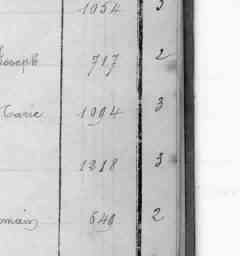 1054 3
Joseph 717 2
Marie 1094 3
1218 3
omain 640 2